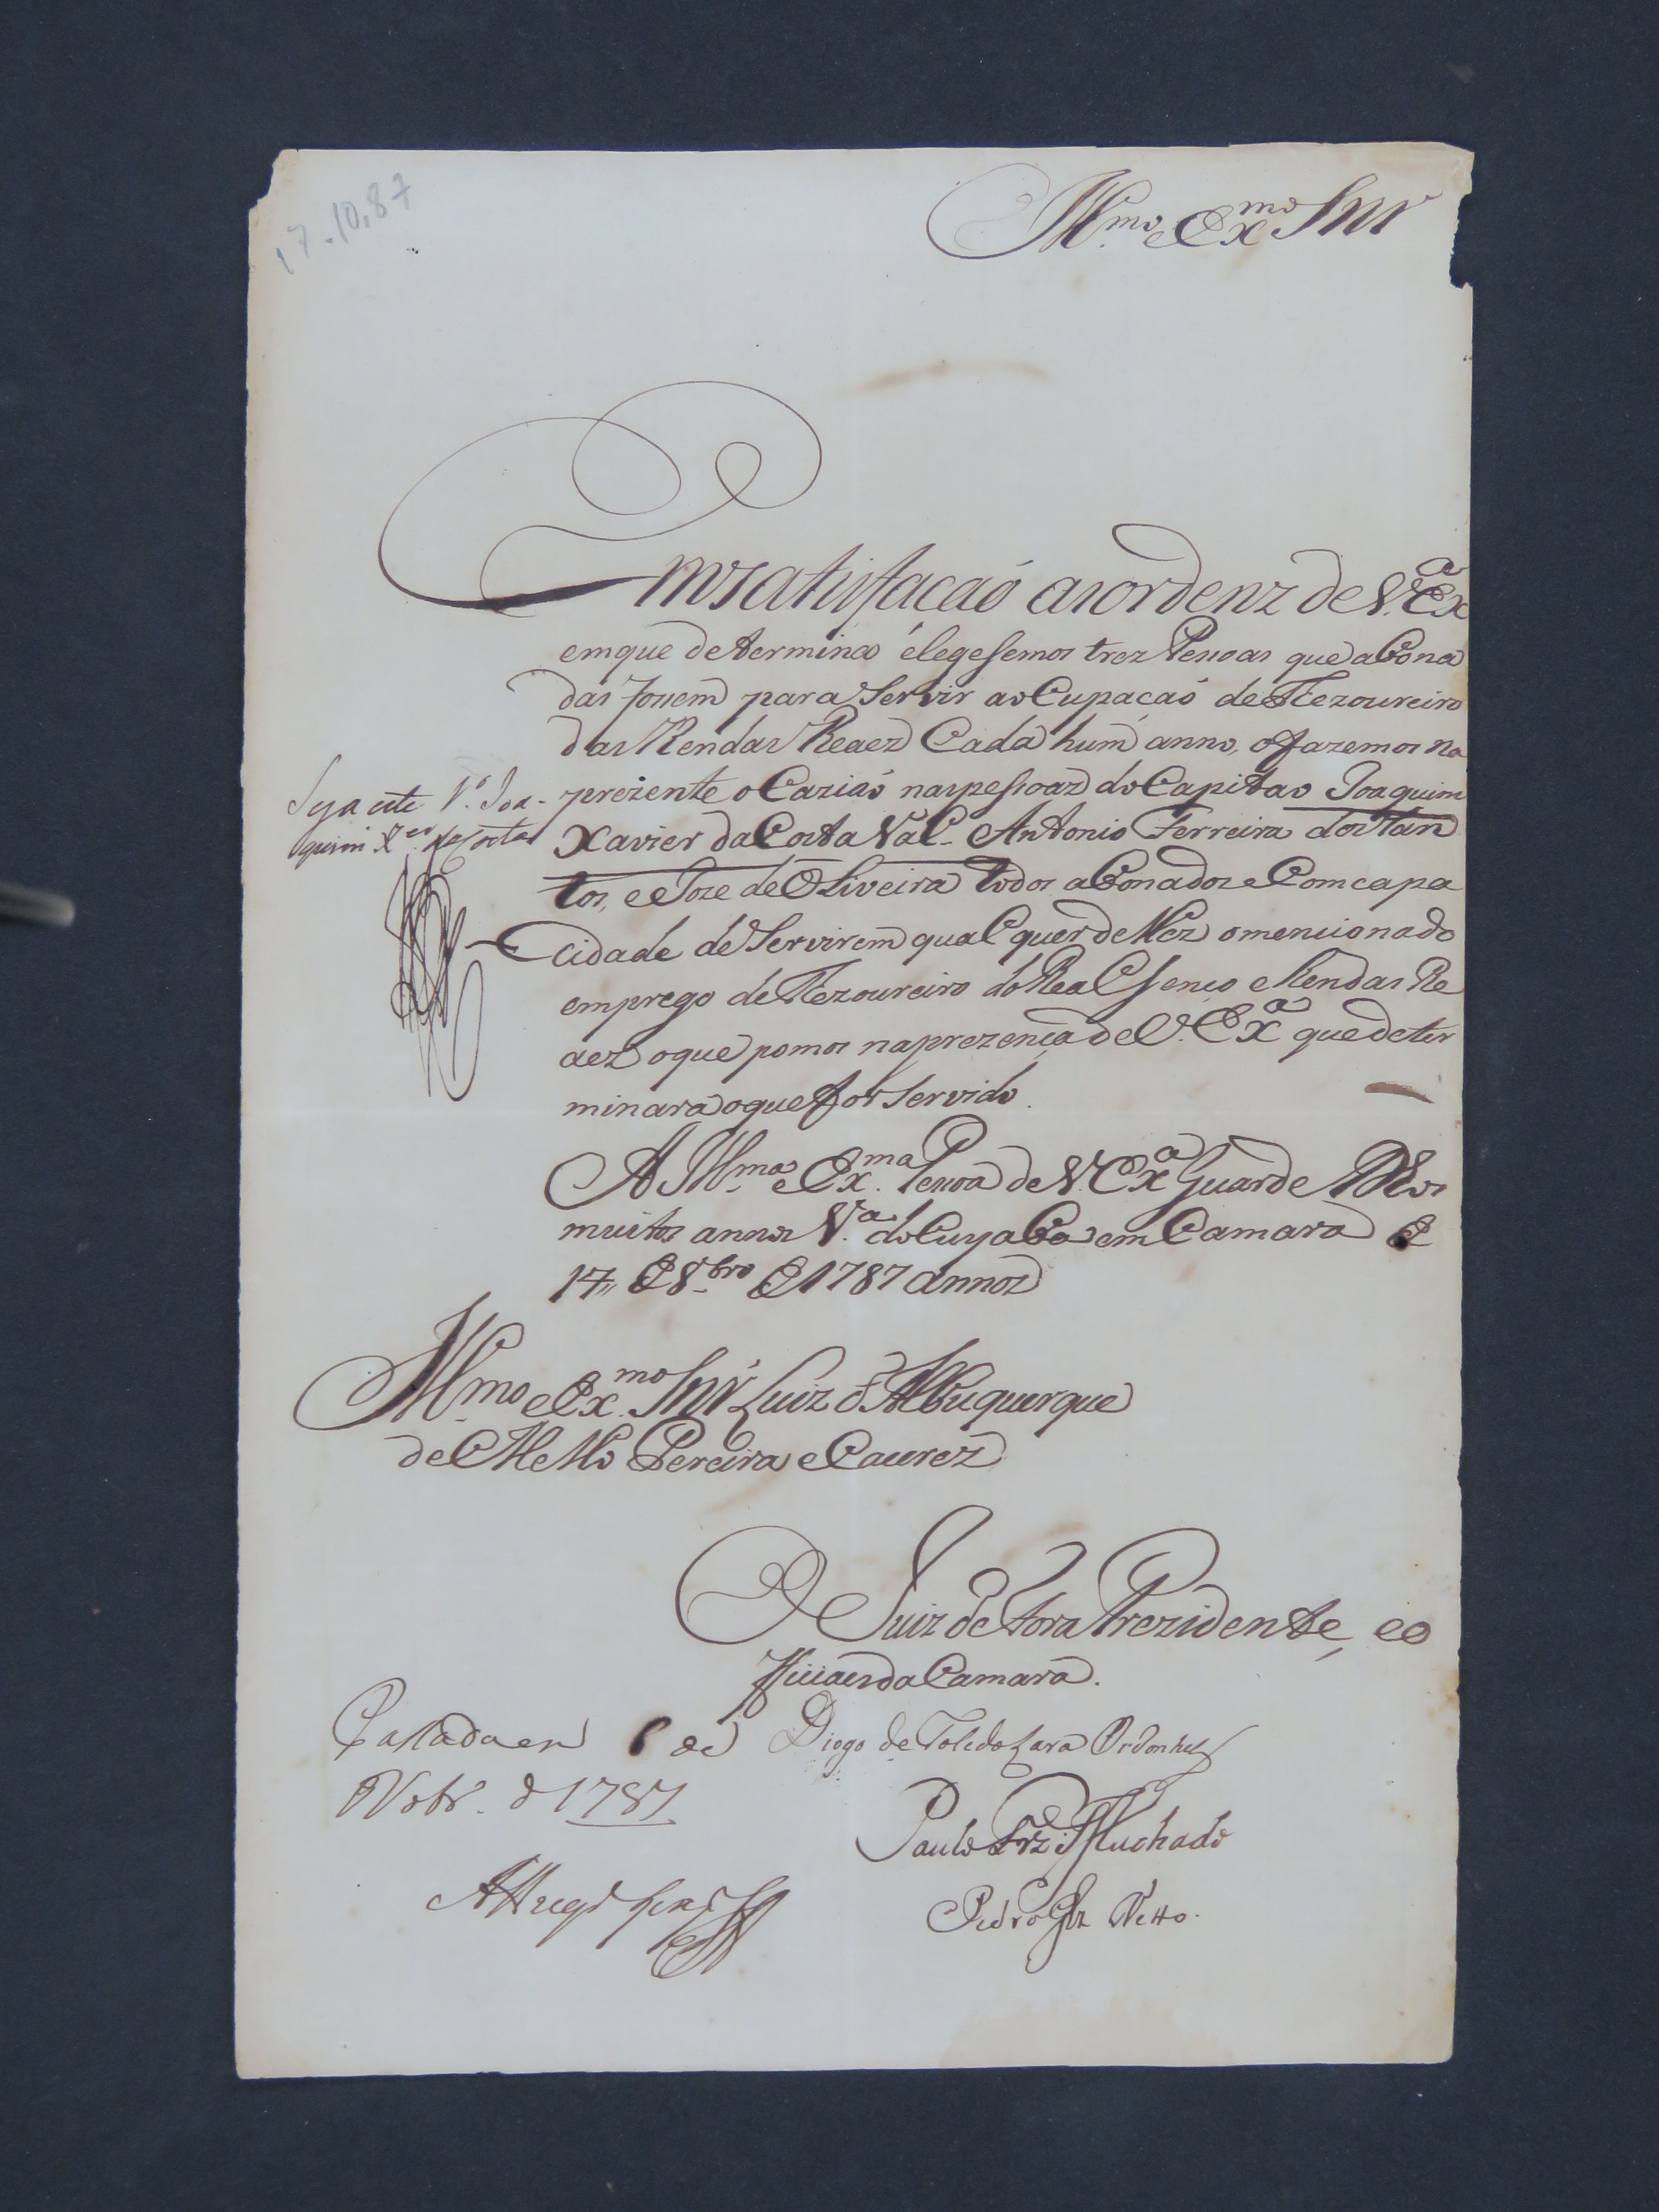 17.10.87
Illmo e Exmo Snr
Em satisfaçaõ as ordenz de V. Exa
em que determina elegesemos trez Pessoas que abona
das fossem para servir a ocupacaõ de Thezoureiro
das Rendas Reaez Cada hum anno, o fazemos na
prezente o Caziaõ nas pessoaz do Capitao Joaquim
Xavier da Costa Val_ Antonio Ferreira dos San
tos, e Joze de Oliveira todos abonados e Com capa
cidade de Servirem qual quer delles o mencionado
emprego de Thezoureiro do Real
e Rendas Re
aez o que pomos na prezença de V. Exa que deter
minará o que for Servido.
Seja este Joa-
quim Xer da Costa
A Illma e Exma Pessoa de V. Exa Guarde Deos
muitos annos Va. do Cuyaba em Camara de
17,, de 8bro de 1787 annos
Illmo e Exmo Snr Luiz d'Albuquerque
de Mello Pereira e Caurez
O Juiz de Fora Prezidente, e o
fficiaes da Camara.
Passada em 6 de
Novbr. d 1787
Diogo de Toledo Lara Ordonhes
Paulo Frz Machado
Pedro Netto.